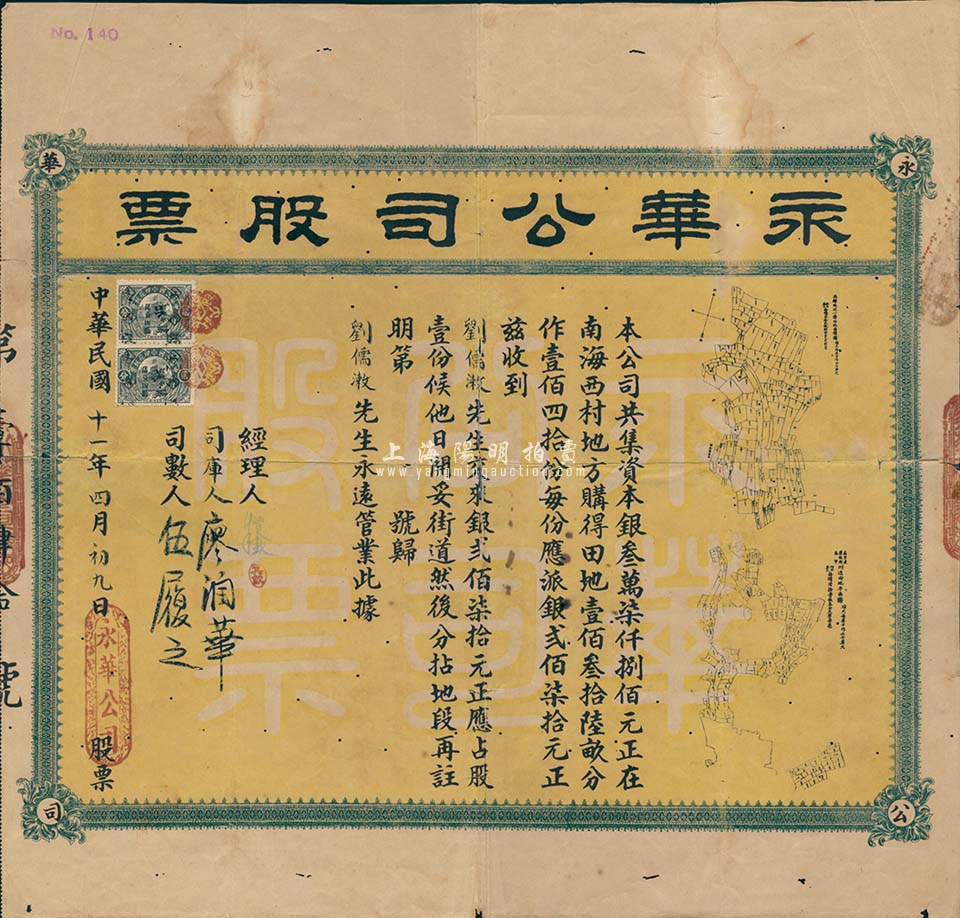 No. 140
永華公司股票
永
華
公
司
本公司共集資本銀叁萬柒仟捌佰元正在
南海西村地方購得田地壹佰叁拾陸畝分
作壹佰四拾份每份應派銀弍佰柒拾元正
茲收到
劉儒漖先生交來銀弍佰柒拾元正應占股
壹份候他日開妥街道然後分拈地段再註
明第 號歸
劉儒漖先生永遠管業此據
經理人
司庫人 廖潤華
司數人 伍履之
中華民國十一年四月初九日 股票
永華公司
第壹百肆拾號
上海陽明拍賣
www.yangmingauction.com